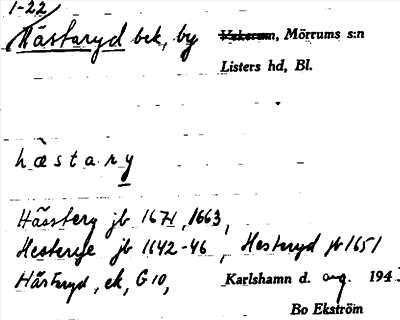 1-22
Hästaryd bek, by Mörrums s:n
Listers hd, Bl.
hàstary
Hässtery jb 1671, 1663,
Hesterye jb 1642-46, Hesteryd jb 1651
Hästaryd, ek, G10,
Karlshamn d. aug. 194
Bo Ekström